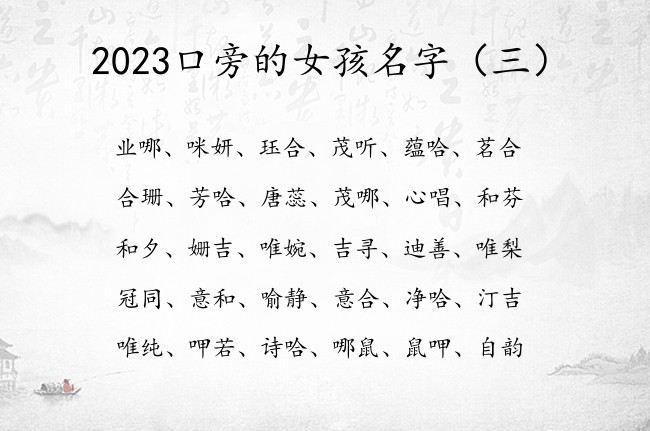 2023口旁的女孩名字（三）
业哪、咪妍、珏合、茂听、蕴哈、茗合
合珊、芳哈、唐蕊、茂哪、心唱、和芬
和夕、姗吉、唯婉、吉寻、迪善、唯梨
冠同、意和、喻静、意合、净哈、汀吉
唯纯、呷若、诗哈、哪鼠、鼠呷、自韵